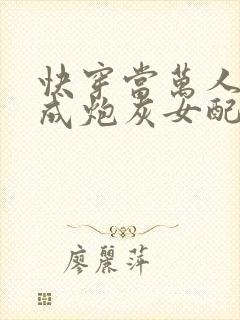 快穿當萬人
成炮灰女配
廖麗萍